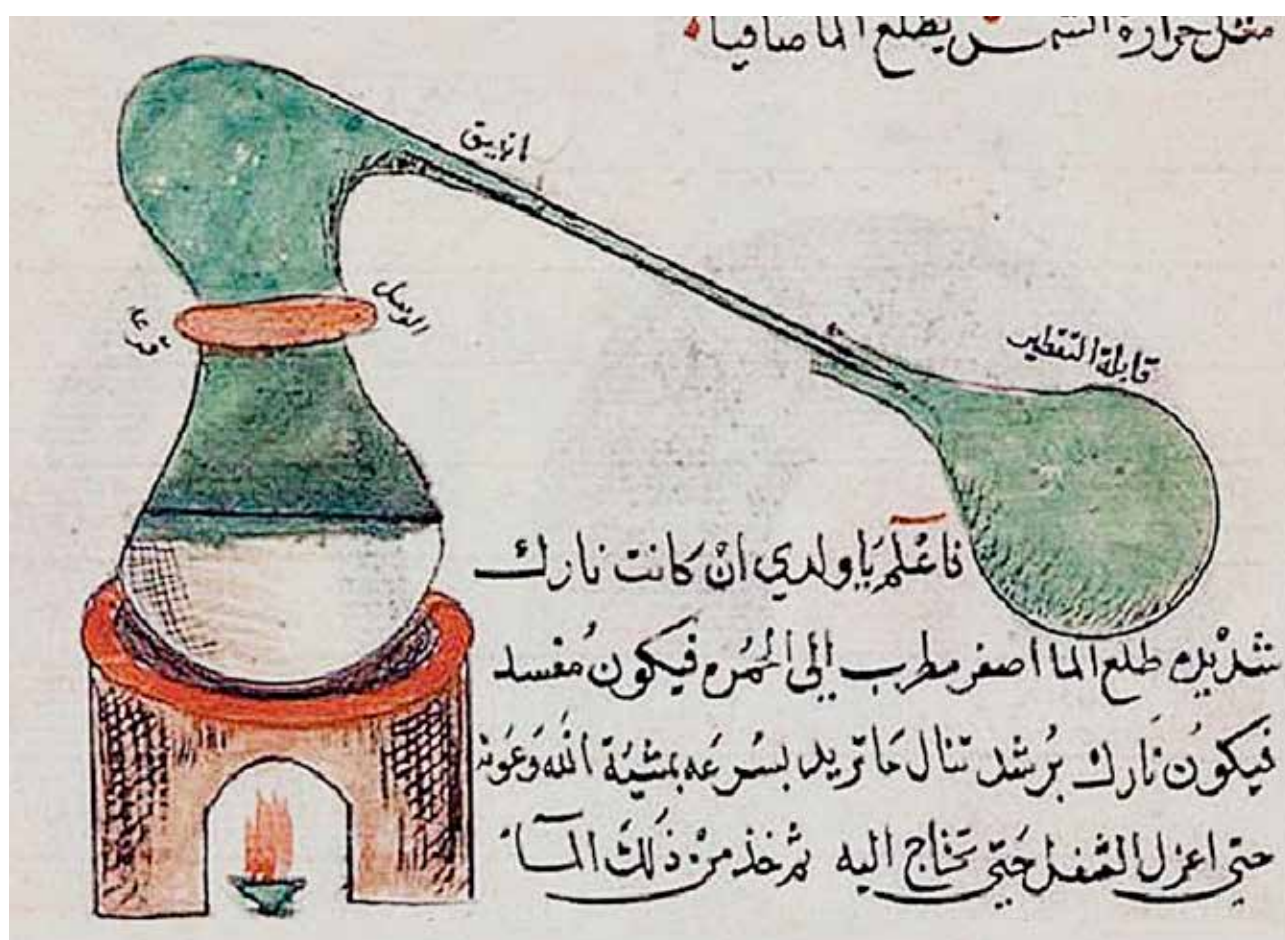 مثل حرارة الشمس يطلع الما صافيا
انبيق
الوصل
قابلة التقطير
فاعْلم يَا ولدي انْ كانت نارك
شديده طلع الما اصفر مطرب الى الحُمره فيكون مُفسد
فيكوُن نَارك بُرشد تنال مَا تريد بسُرعَه بمشيّة الله وَعَونه
حتى اعزل الثفل حَتى تحتاج اليه ثم خذ منْ ذَلكَ المآء